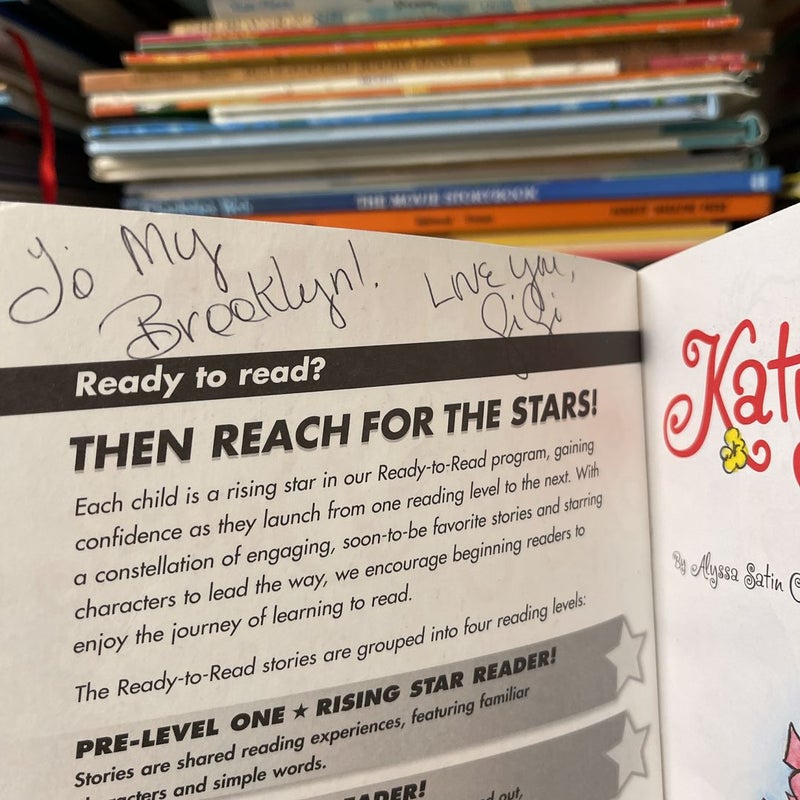 THE MOVIE STORYBOOK
To My
Brooklyn!
Love you,
GiGi
Ready to read?
THEN REACH FOR THE STARS!
Each child is a rising star in our Ready-to-Read program, gaining
confidence as they launch from one reading level to the next. With
a constellation of engaging, soon-to-be favorite stories and starring
characters to lead the way, we encourage beginning readers to
enjoy the journey of learning to read.
The Ready-to-Read stories are grouped into four reading levels:
PRE-LEVEL ONE ★ RISING STAR READER!
Stories are shared reading experiences, featuring familiar
characters and simple words.
READER!
out,
Katy
By Alyssa Satin C